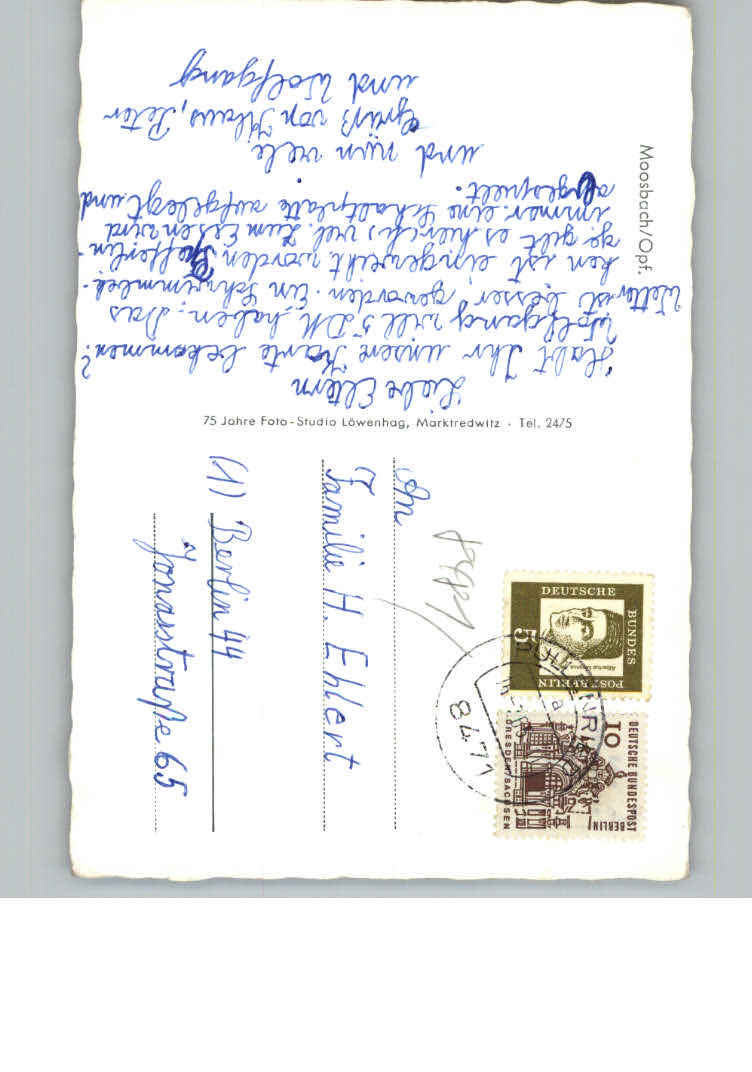 Moosbach/Opf.
Liebe Eltern
Habt Ihr unsere Karte bekommen?
Wolfgang will 5 DM haben. Das
Wetter ist besser geworden. Ein Schwimmbek-
ken ist eingeweiht worden. Pfefferlin-
ge gibt es hier viel. Zum Essen wird
immer eine Schallplatte aufgelegt und
abgespielt.
und nun viele
Grüß von Klaus, Peter
und Wolfgang
75 Jahre Foto-Studio Löwenhag, Marktredwitz · Tel. 2475
An
Familie H. Ehlert
(1) Berlin 44
Jonasstraße 65
DEUTSCHE
BUNDES
POST BERLIN
5
Albertus Magnus
DEUTSCHE BUNDESPOST
BERLIN
10
DRESDEN/SACHSEN
8471